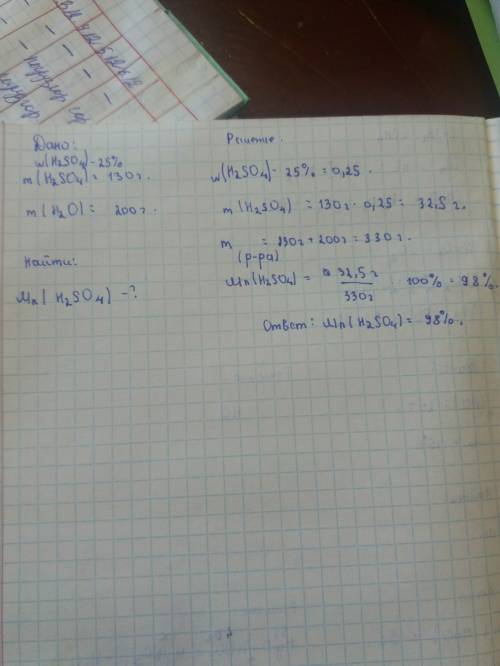 Дано:
w(H₂SO₄) - 25%
m(H₂SO₄) = 130г.
m(H₂O) = 200г.
Найти:
Mп(H₂SO₄) - ?
Решение.
w(H₂SO₄) - 25% = 0,25.
m(H₂SO₄) = 130г · 0,25 = 32,5г.
m = 130г + 200г = 330г.
(р-ра)
Mп(H₂SO₄) = 32,5г / 330г · 100% = 98%.
Ответ: Mп(H₂SO₄) = 98%.